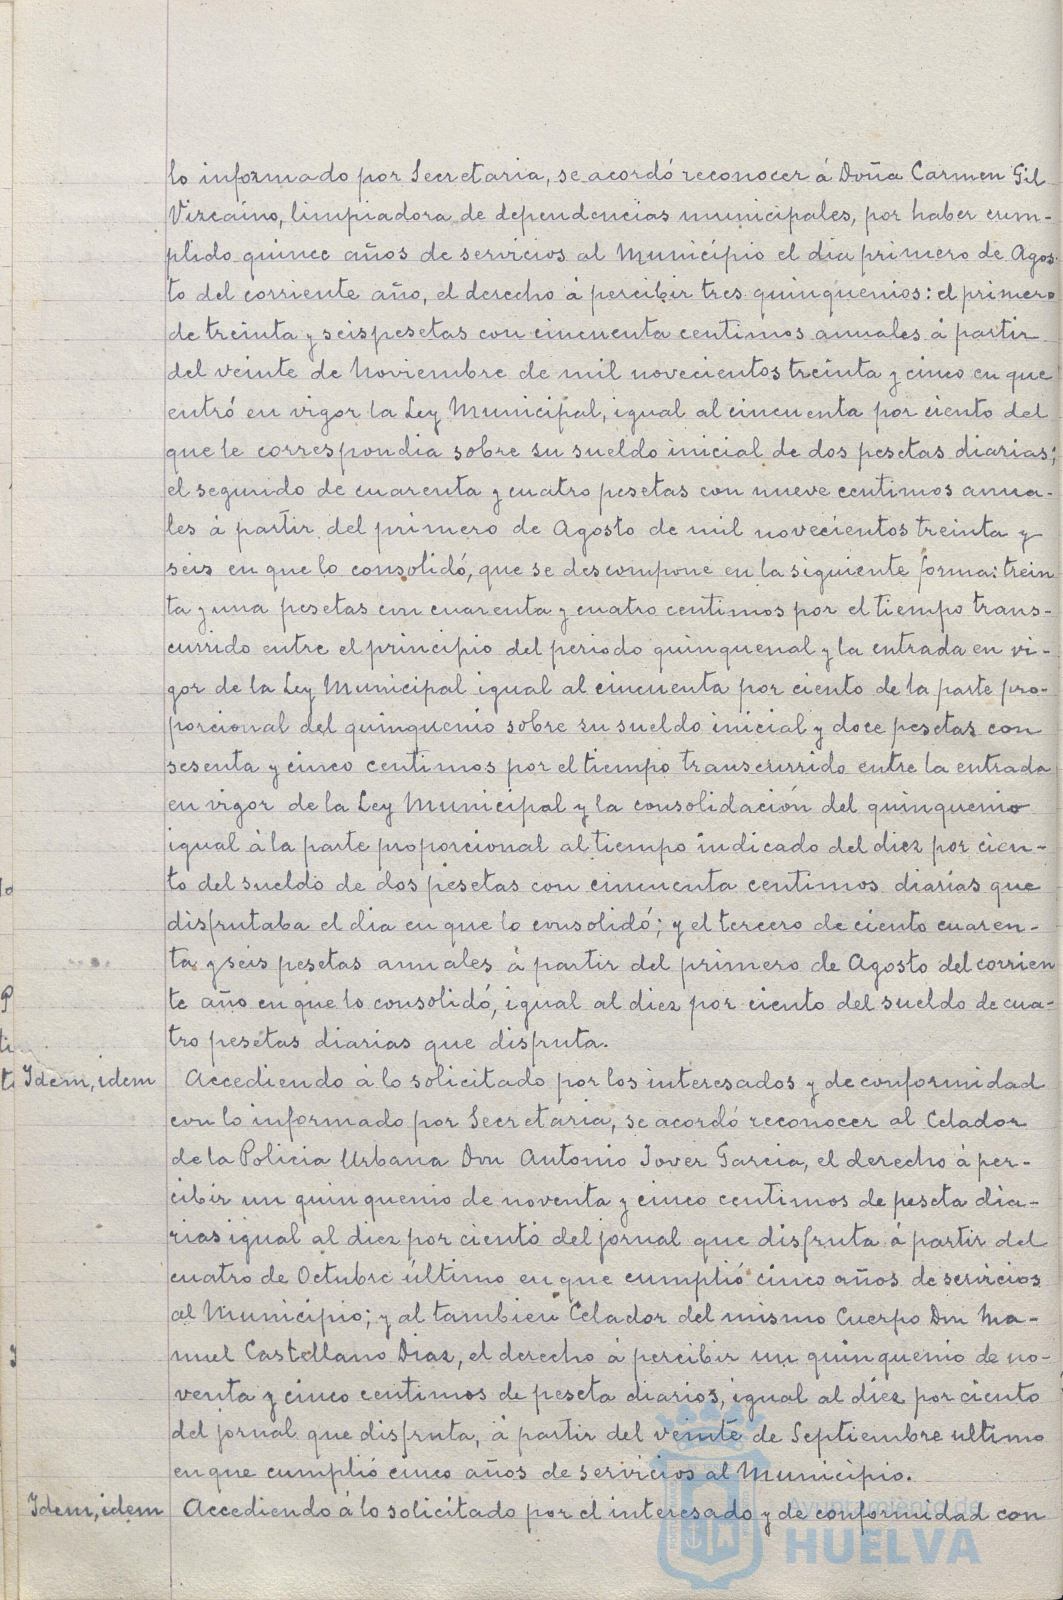 lo informado por Secretaria, se acordó reconocer á Doña Carmen Gil
Vizcaino, limpiadora de dependencias municipales, por haber cum-
plido quince años de servicios al Municipio el dia primero de Agos-
to del corriente año, el derecho á percibir tres quinquenios: el primero
de treinta y seis pesetas con cincuenta centimos anuales á partir
del veinte de Noviembre de mil novecientos treinta y cinco en que
entró en vigor la Ley Municipal, igual al cincuenta por ciento del
que le correspondia sobre su sueldo inicial de dos pesetas diarias;
el segundo de cuarenta y cuatro pesetas con nueve centimos anua-
les á partir del primero de Agosto de mil novecientos treinta y
seis en que lo consolidó, que se descompone en la siguiente forma: trein
ta y una pesetas con cuarenta y cuatro centimos por el tiempo trans-
currido entre el principio del periodo quinquenal y la entrada en vi-
gor de la Ley Municipal igual al cincuenta por ciento de la parte pro-
porcional del quinquenio sobre su sueldo inicial y doce pesetas con
sesenta y cinco centimos por el tiempo transcurrido entre la entrada
en vigor de la Ley Municipal y la consolidación del quinquenio
igual á la parte proporcional al tiempo indicado del diez por cien-
to del sueldo de dos pesetas con cincuenta centimos diarias que
disfrutaba el dia en que lo consolidó; y el tercero de ciento cuaren-
ta y seis pesetas anuales á partir del primero de Agosto del corrien
te año en que lo consolidó, igual al diez por ciento del sueldo de cua-
tro pesetas diarias que disfruta.
Idem, idem Accediendo á lo solicitado por los interesados y de conformidad
con lo informado por Secretaria, se acordó reconocer al Celador
de la Policia Urbana Don Antonio Jover Garcia, el derecho á per-
cibir un quinquenio de noventa y cinco centimos de peseta dia-
rias igual al diez por ciento del jornal que disfruta á partir del
cuatro de Octubre último en que cumplió cinco años de servicios
al Municipio; y al tambien Celador del mismo Cuerpo Don Ma-
nuel Castellano Diaz, el derecho á percibir un quinquenio de no-
venta y cinco centimos de peseta diarios, igual al diez por ciento
del jornal que disfruta, á partir del veinte de Septiembre ultimo
en que cumplió cinco años de servicios al Municipio.
Idem, idem Accediendo á lo solicitado por el interesado y de conformidad con
Ayuntamiento de
HUELVA